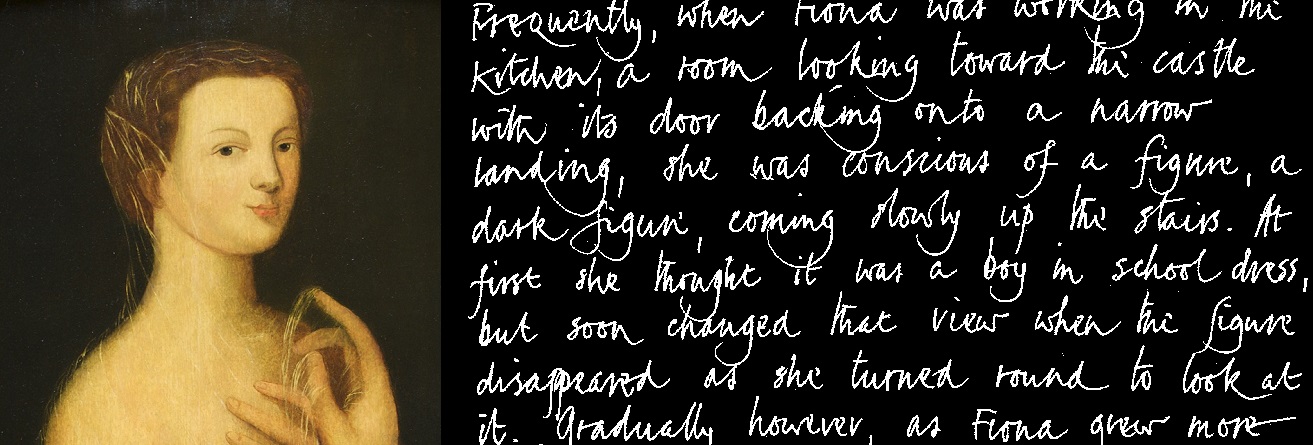 Frequently, when Fiona was working in the
kitchen, a room looking toward the castle
with its door backing onto a narrow
landing, she was conscious of a figure, a
dark figure, coming slowly up the stairs. At
first she thought it was a boy in school dress,
but soon changed that view when the figure
disappeared as she turned round to look at
it. Gradually however, as Fiona grew more